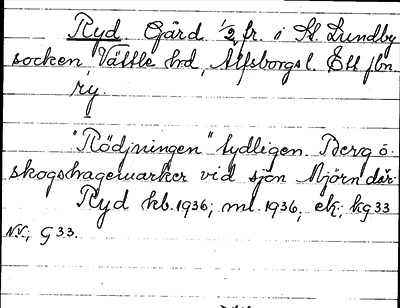 Ryd. Gård 1/2 fr. i St. Lundby
socken Vättle hrd, Älfsborgs l. Ett jbn.
ry.
"Rödjningen" tydligen. Berg o.
skogshagemarker vid sjön Mjörn där.
Ryd kb. 1936; ml. 1936, ek; kg 33
NV.; G 33.